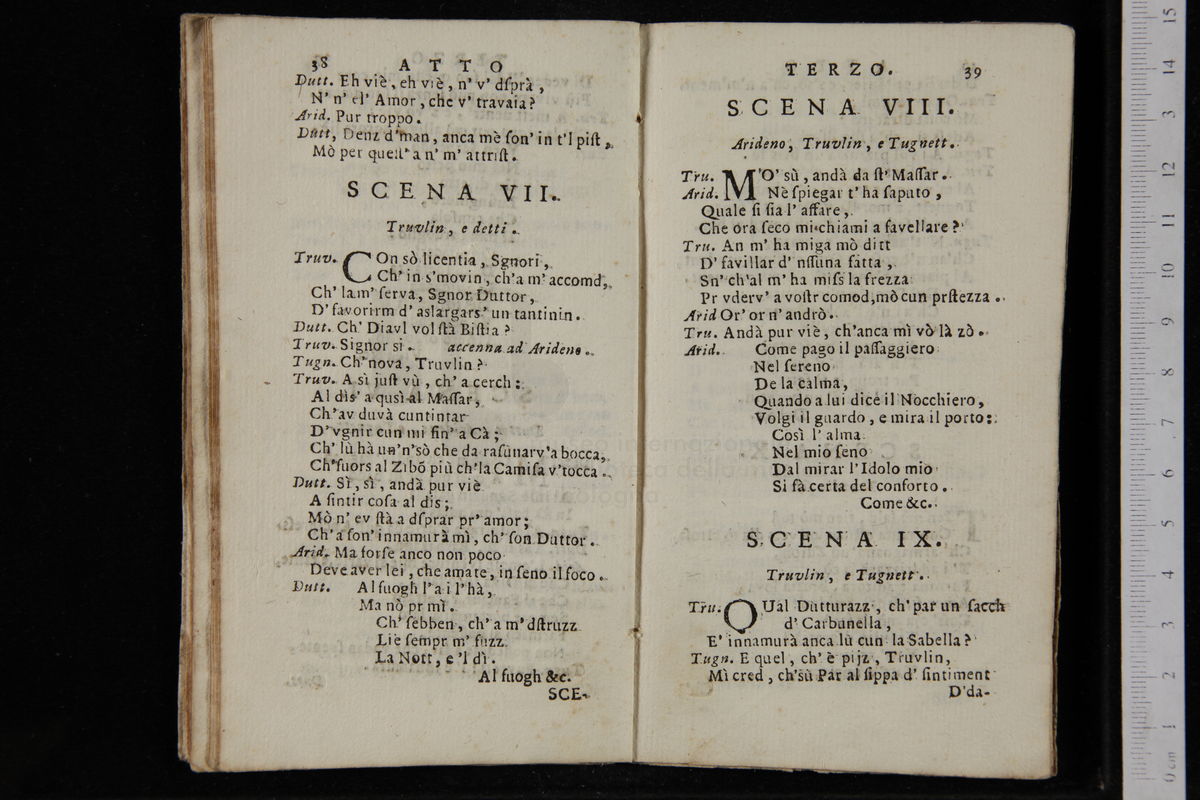 38 ATTO
Dutt. Eh viè, eh viè, n' v' dſprà,
N' n' el' Amor, che v' travaia?
Arid. Pur troppo.
Dutt, Denz d'man, anca mè ſon' in t'l piſt,
Mò per quell' a n' m' attriſt.
SCENA VII.
Truvlin, e detti.
Truv. COn sò licentia, Sgnori,
Ch' in s'movin, ch'a m' accomd,
Ch' lam' ſerva, Sgnor Duttor,
D' favorirm d' aslargars' un tantinin.
Dutt. Ch' Diavl vol ſtà Biſtia?
Truv. Signor si. accenna ad Arideno.
Tugn. Ch' nova, Truvlin?
Truv. A sì juſt vù, ch' a cerch:
Al dis' a qusì al Maſſar,
Ch'av duvà cuntintar
D' vgnir cun mi ſin' a Cà;
Ch' lù hà un'n'sò che da raſunarv'a bocca,
Ch'fuors al Zibõ più ch'la Camiſa v'tocca.
Dutt. Sì, sì, andà pur viè
A ſintir coſa al dis;
Mò n' ev ſtà a dſprar pr' amor;
Ch' a ſon' innamurà mì, ch' ſon Duttor.
Arid. Ma forſe anco non poco
Deve aver lei, che amate, in ſeno il foco.
Dutt. Al fuogh l'a i l'hà,
Ma nò pr mì.
Ch' ſebben, ch' a m' dſtruzz
Liè ſempr m' fuzz
La Nott, e 'l dì.
Al fuogh &c.
SCE-
TERZO. 39
SCENA VIII.
Arideno, Truvlin, e Tugnett.
Tru. MO' sù, andà da ſt' Maſſar.
Arid. Nè ſpiegar t' ha ſaputo,
Quale ſi ſia l' affare,
Che ora ſeco mi chiami a favellare?
Tru. An m' ha miga mò ditt
D' favillar d' nſſuna fatta,
Sn' ch'al m' ha miſs la frezza
Pr vderv' a voſtr comod, mò cun prſtezza.
Arid Or' or n' andrò.
Tru. Andà pur viè, ch'anca mì vò là zò.
Arid. Come pago il paſſaggiero
Nel ſereno
De la calma,
Quando a lui dice il Nocchiero,
Volgi il guardo, e mira il porto:
Così l' alma
Nel mio ſeno
Dal mirar l'Idolo mio
Si fà certa del conforto.
Come &c.
SCENA IX.
Truvlin, e Tugnett.
Tru. QUal Dutturazz, ch' par un ſacch
d' Carbunella,
E' innamurà anca lù cun la Sabella?
Tugn. E quel, ch' è pijz, Truvlin,
Mì cred, ch'sù Par al ſippa d' ſintiment
D'da-